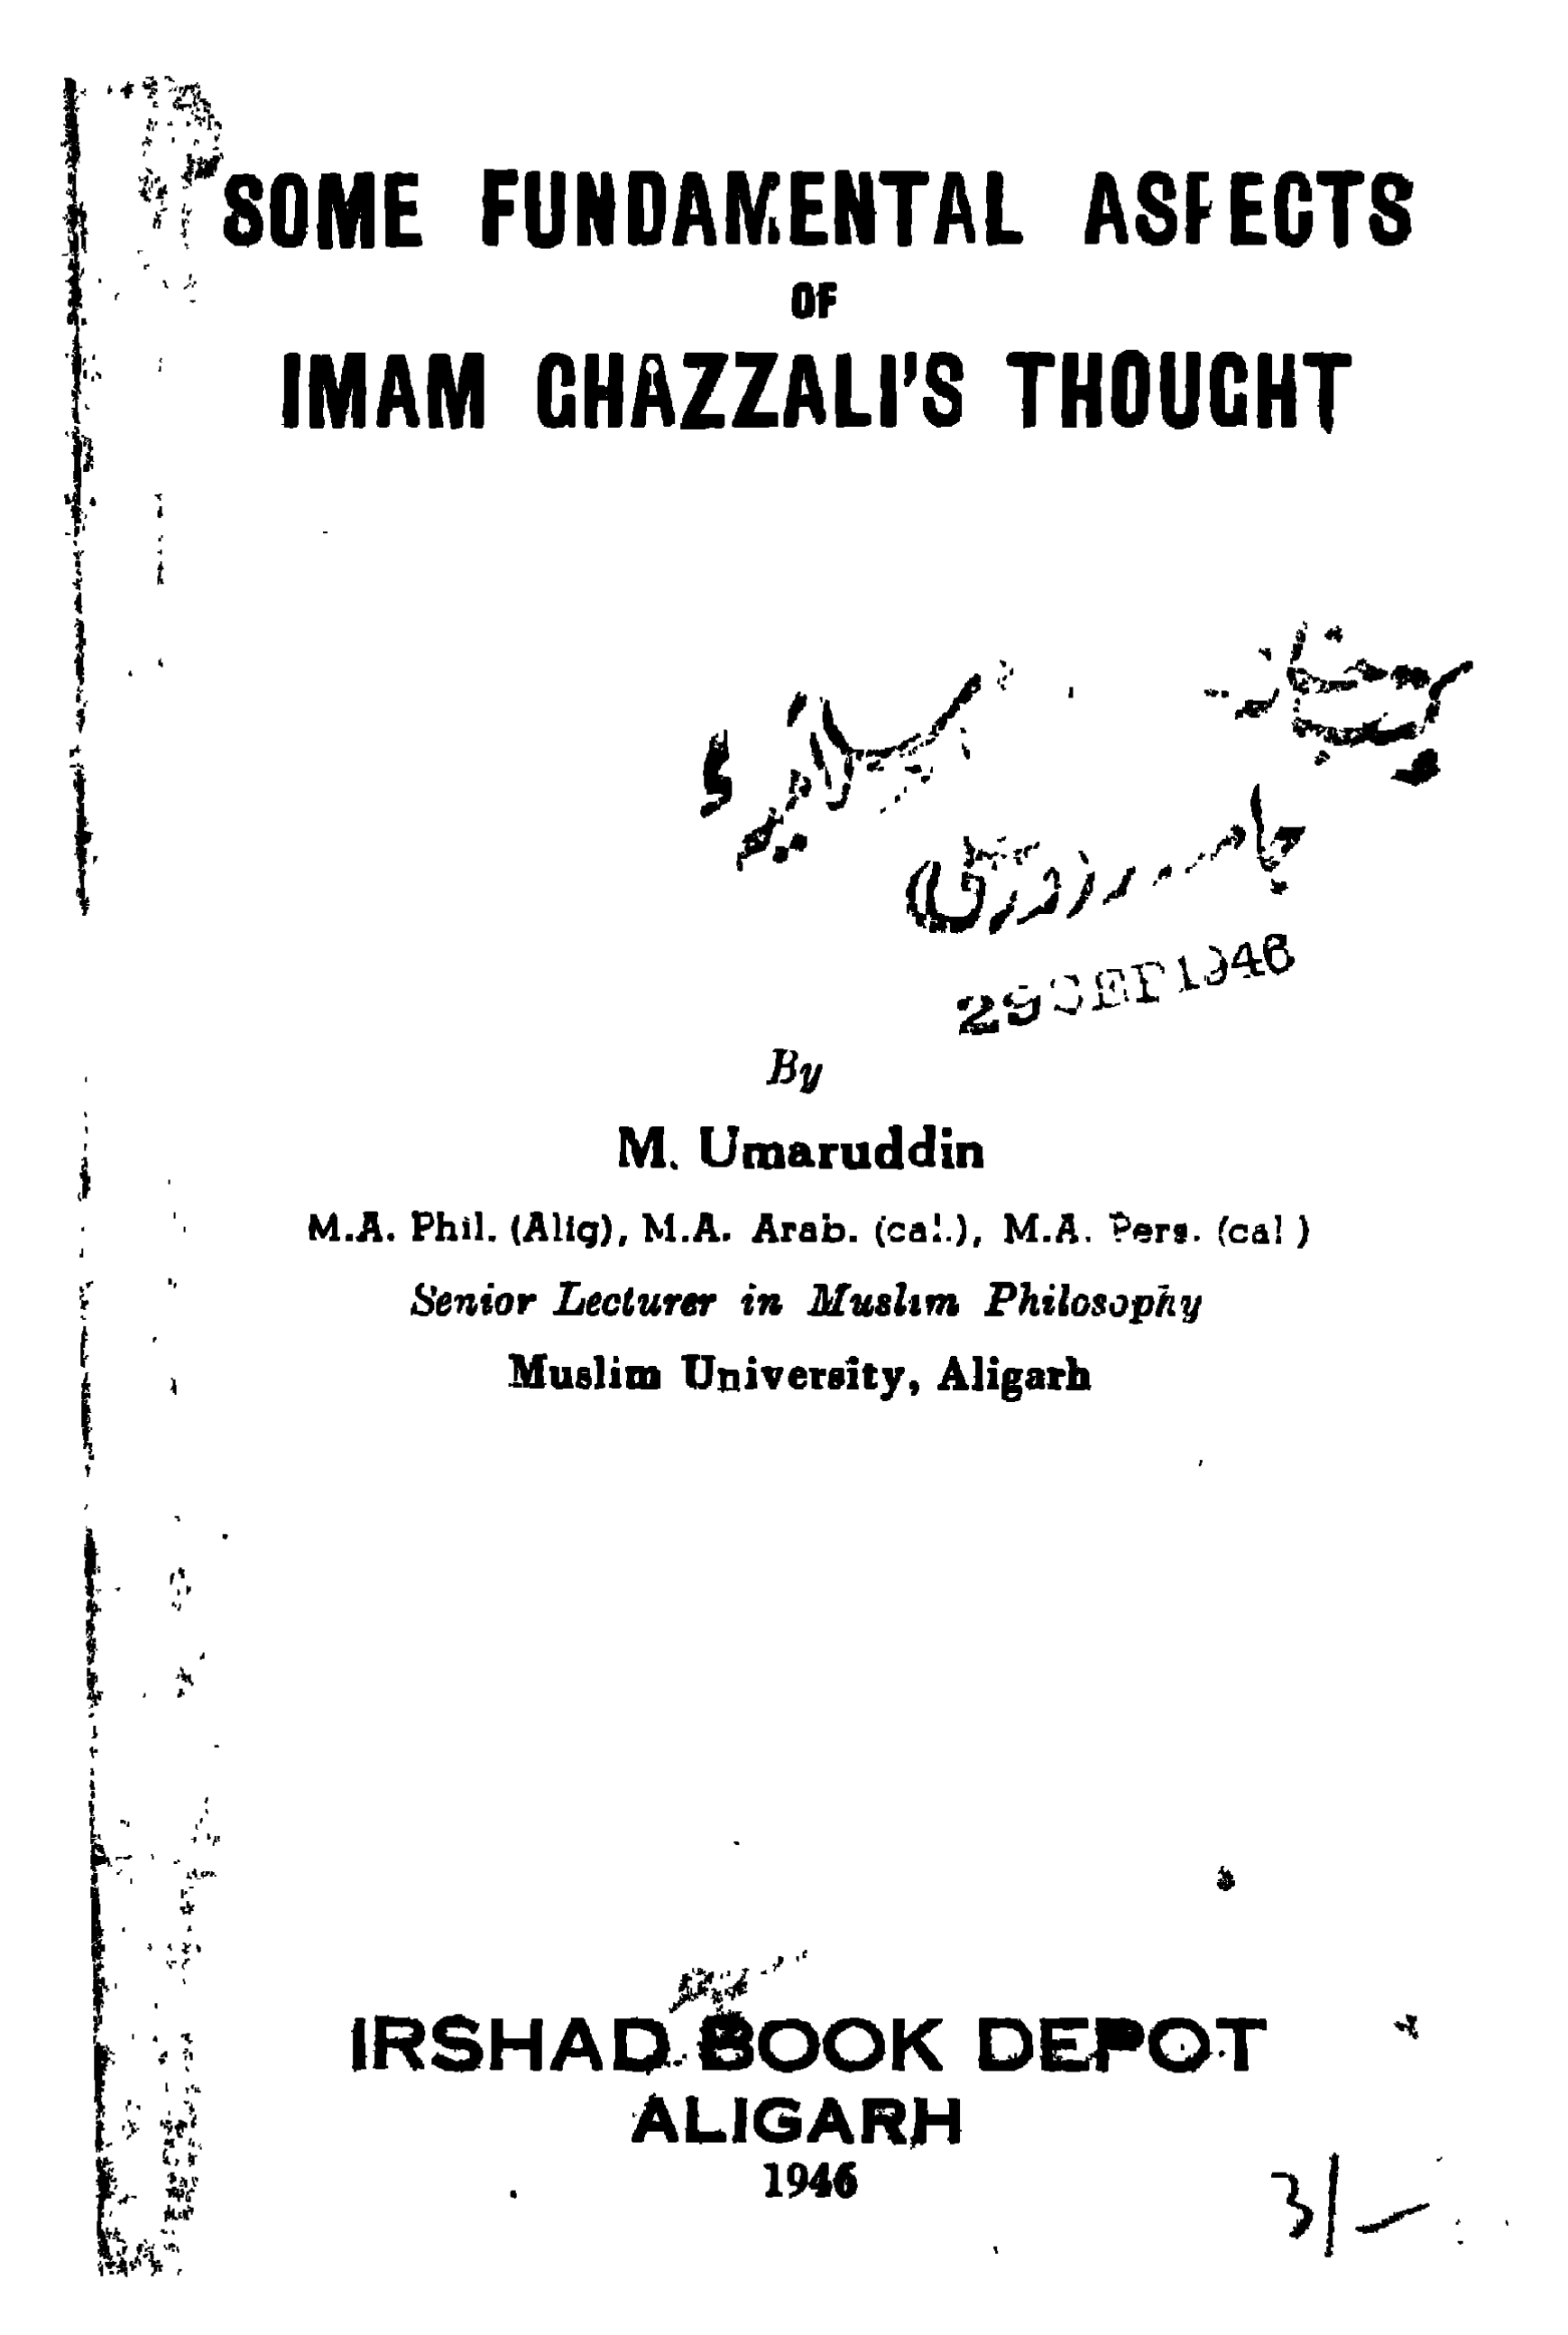 SOME FUNDAMENTAL ASPECTS
OF
IMAM GHAZZALI'S THOUGHT
29 SEP 1946
By
M. Umaruddin
M.A. Phil. (Alig), M.A. Arab. (cal.), M.A. Pers. (cal)
Senior Lecturer in Muslim Philosophy
Muslim University, Aligarh
IRSHAD BOOK DEPOT
ALIGARH
1946
3/-